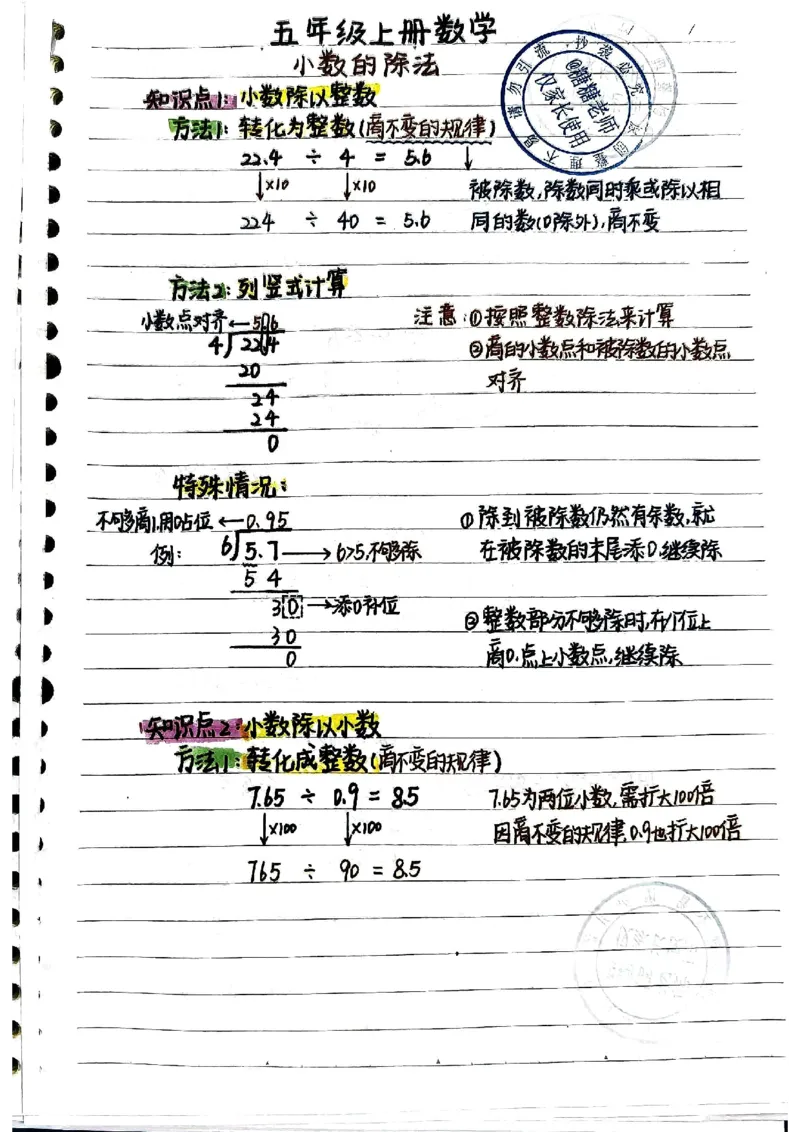 五年级上册数学
小数的除法
知识点1: 小数除以整数
方法1: 转化为整数(商不变的规律)
22.4 ÷ 4 = 5.6 ↓
↓×10 ↓×10 被除数,除数同时乘或除以相
224 ÷ 40 = 5.6 同的数(0除外),商不变
方法2: 列竖式计算
小数点对齐←5.6 注意:①按照整数除法来计算
4 22.4 ②商的小数点和被除数的小数点
20 对齐
24
24
0
特殊情况:
不够商1,用0占位 ←0.95 ①除到被除数仍然有余数,就
例: 6 5.7 → 6>5,不够除 在被除数的末尾添0,继续除
5 4
30 →添0补位 ②整数部分不够除时,在个位上
30 商0,点上小数点,继续除
0
知识点2: 小数除以小数
方法1: 转化成整数(商不变的规律)
7.65 ÷ 0.9 = 8.5 7.65为两位小数,需扩大100倍
↓×100 ↓×100 因商不变的规律,0.9也扩大100倍
765 ÷ 90 = 8.5
请勿引流,抄袭必究
@糖糖老师
仅家长使用
整理不易